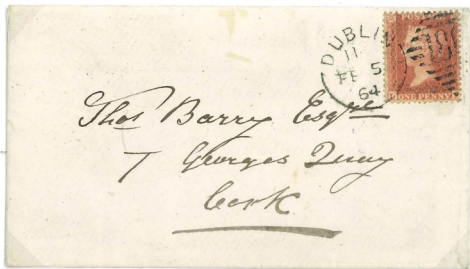 DUBLIN
11
FE 5
64
ONE PENNY
Thos Barry Esqre
7 Georges Quay
Cork